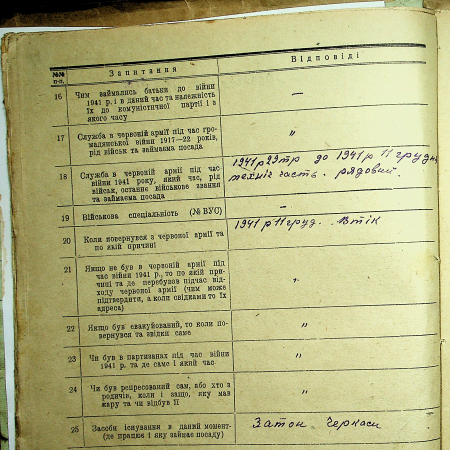 №№ п-п.
Запитання
Відповіді
16 Чим займались батьки до війни
1941 р. і в даний час та належність
їх до комуністичної партії і з
якого часу
—
17 Служба в червоній армії під час гро-
мадянської війни 1917—22 років,
рід військ та займаєма посада
"
18 Служба в червоній армії під час
війни 1941 року, який час, рід
військ, останнє військове звання
та займаєма посада
1941 р 23 до 1941 р 11 грудня
техніч часть. рядовий.
19 Військова спеціальність (№ ВУС)
—
20 Коли повернувся з червоної армії та
по якій причині
1941 р 11 груд. Втік
21 Якщо не був в червоній армії під
час війни 1941 р., то по якій при-
чині та де перебував підчас від-
ходу червоної армії (чим може
підтвердити, а коли свідками то їх
адреса)
"
22 Якщо був евакуйований, то коли по-
вернувся та звідки саме
"
23 Чи був в партизанах під час війни
1941 р. та де саме і який час
"
24 Чи був репресований сам, або хто з
родичів, коли і защо, яку мав
кару та чи відбув її
"
25 Засоби існування в даний момент-
(де працює і яку займає посаду)
Затон Черкаси